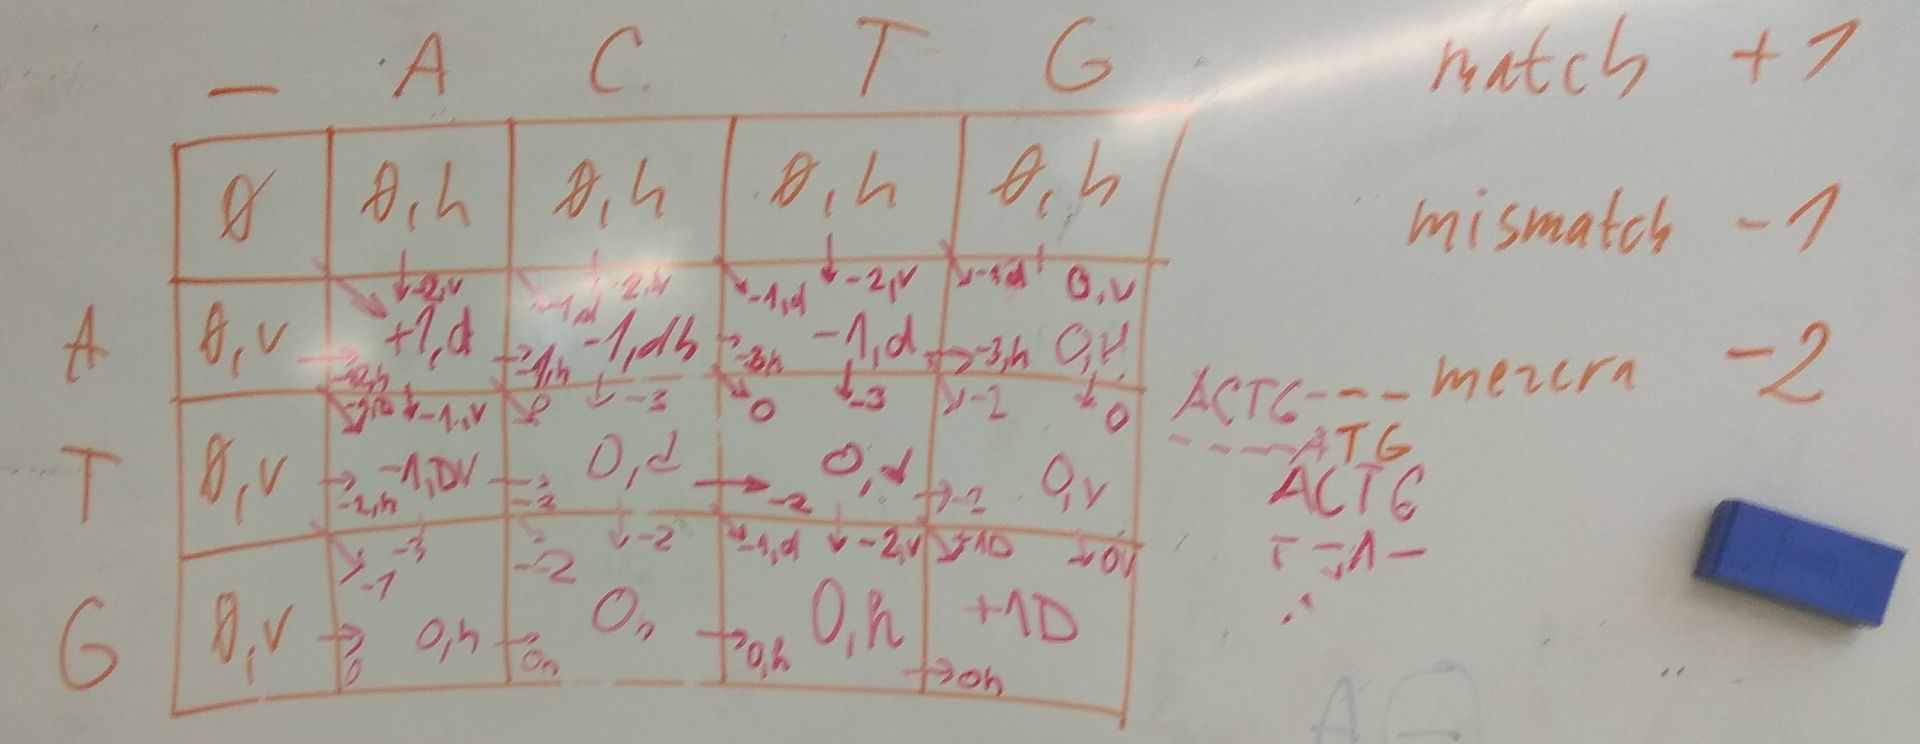 – A C T G match +1
0 0,h 0,h 0,h 0,h
mismatch -1
-2,v -1,d -2,v -1,d -2,v -1,d 0,v
A 0,v +1,d -1,dh -1,d 0,v
-2,h -1,h -3,h -3,h
mezera -2
-1,v 0 -3 0 -3 -2 0
ACTG---
----ATG
T 0,v -1,DV 0,d 0,d 0,v
-2,h -2 -2 -2
ACTG
-1 -3 -2 -2 -1,d -2,v +1D 0v
G 0,v 0,h 0h 0,h +1D
0 0h 0,h 0h